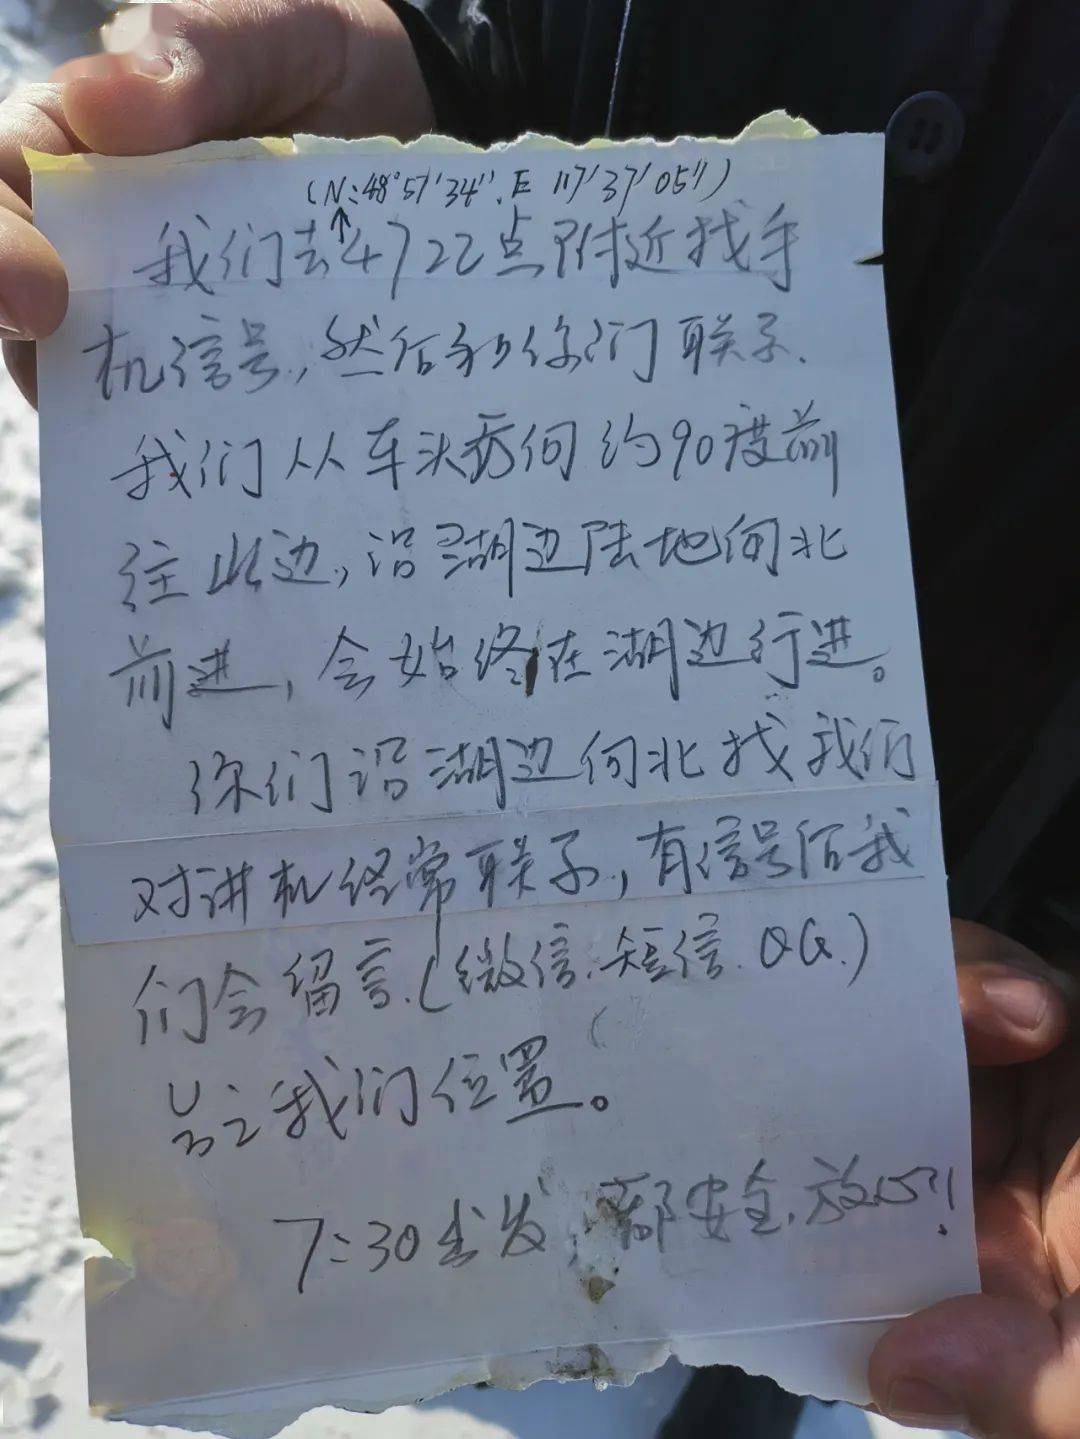 (N:48°57'34", E 117°37'05")
↑
我们去4722点附近找手
机信号,然后和你们联系.
我们从车头方向约90度前
往山边,沿湖边陆地向北
前进,会始终在湖边行进。
你们沿湖边向北找我们
对讲机经常联系,有信号后我
们会留言.(微信.短信.QQ.)
我们位置。
7:30出发,都安全,放心!